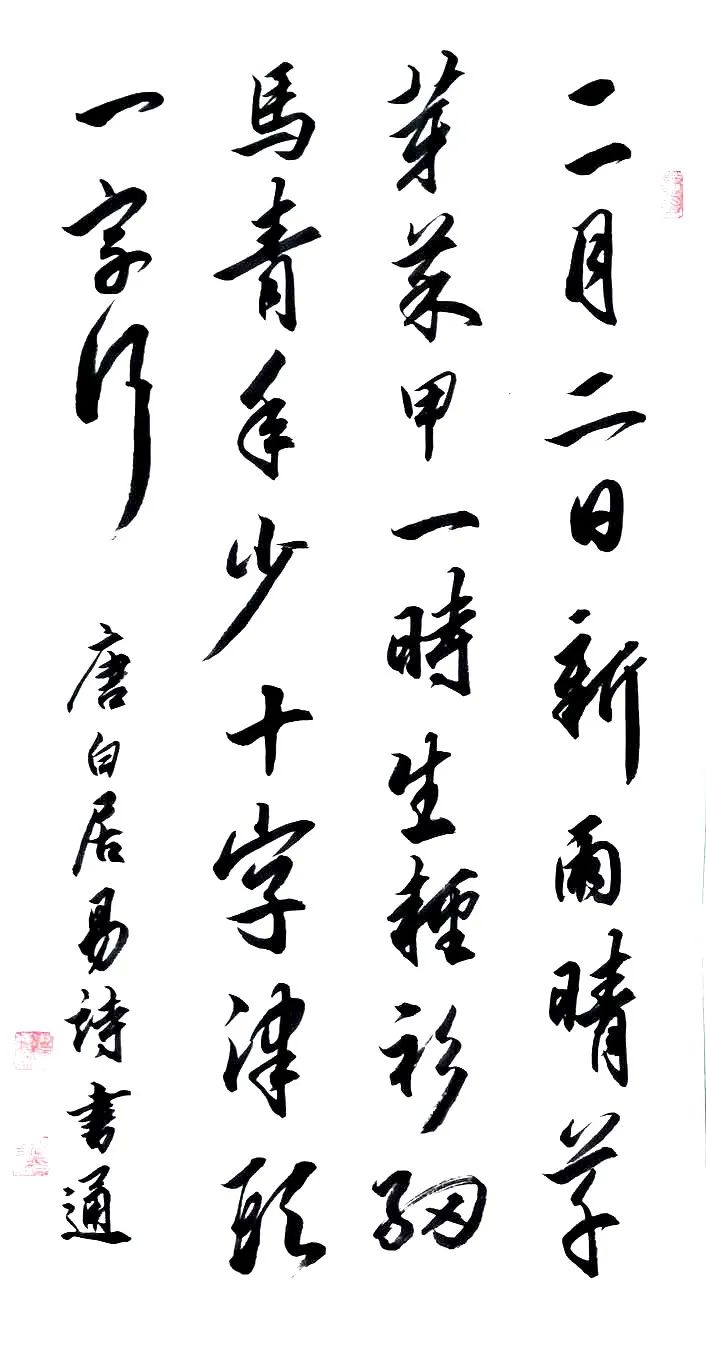 二月二日新雨晴草
芽菜甲一時生輕衫細
馬青年少十字津頭
一字行
唐白居易詩書通